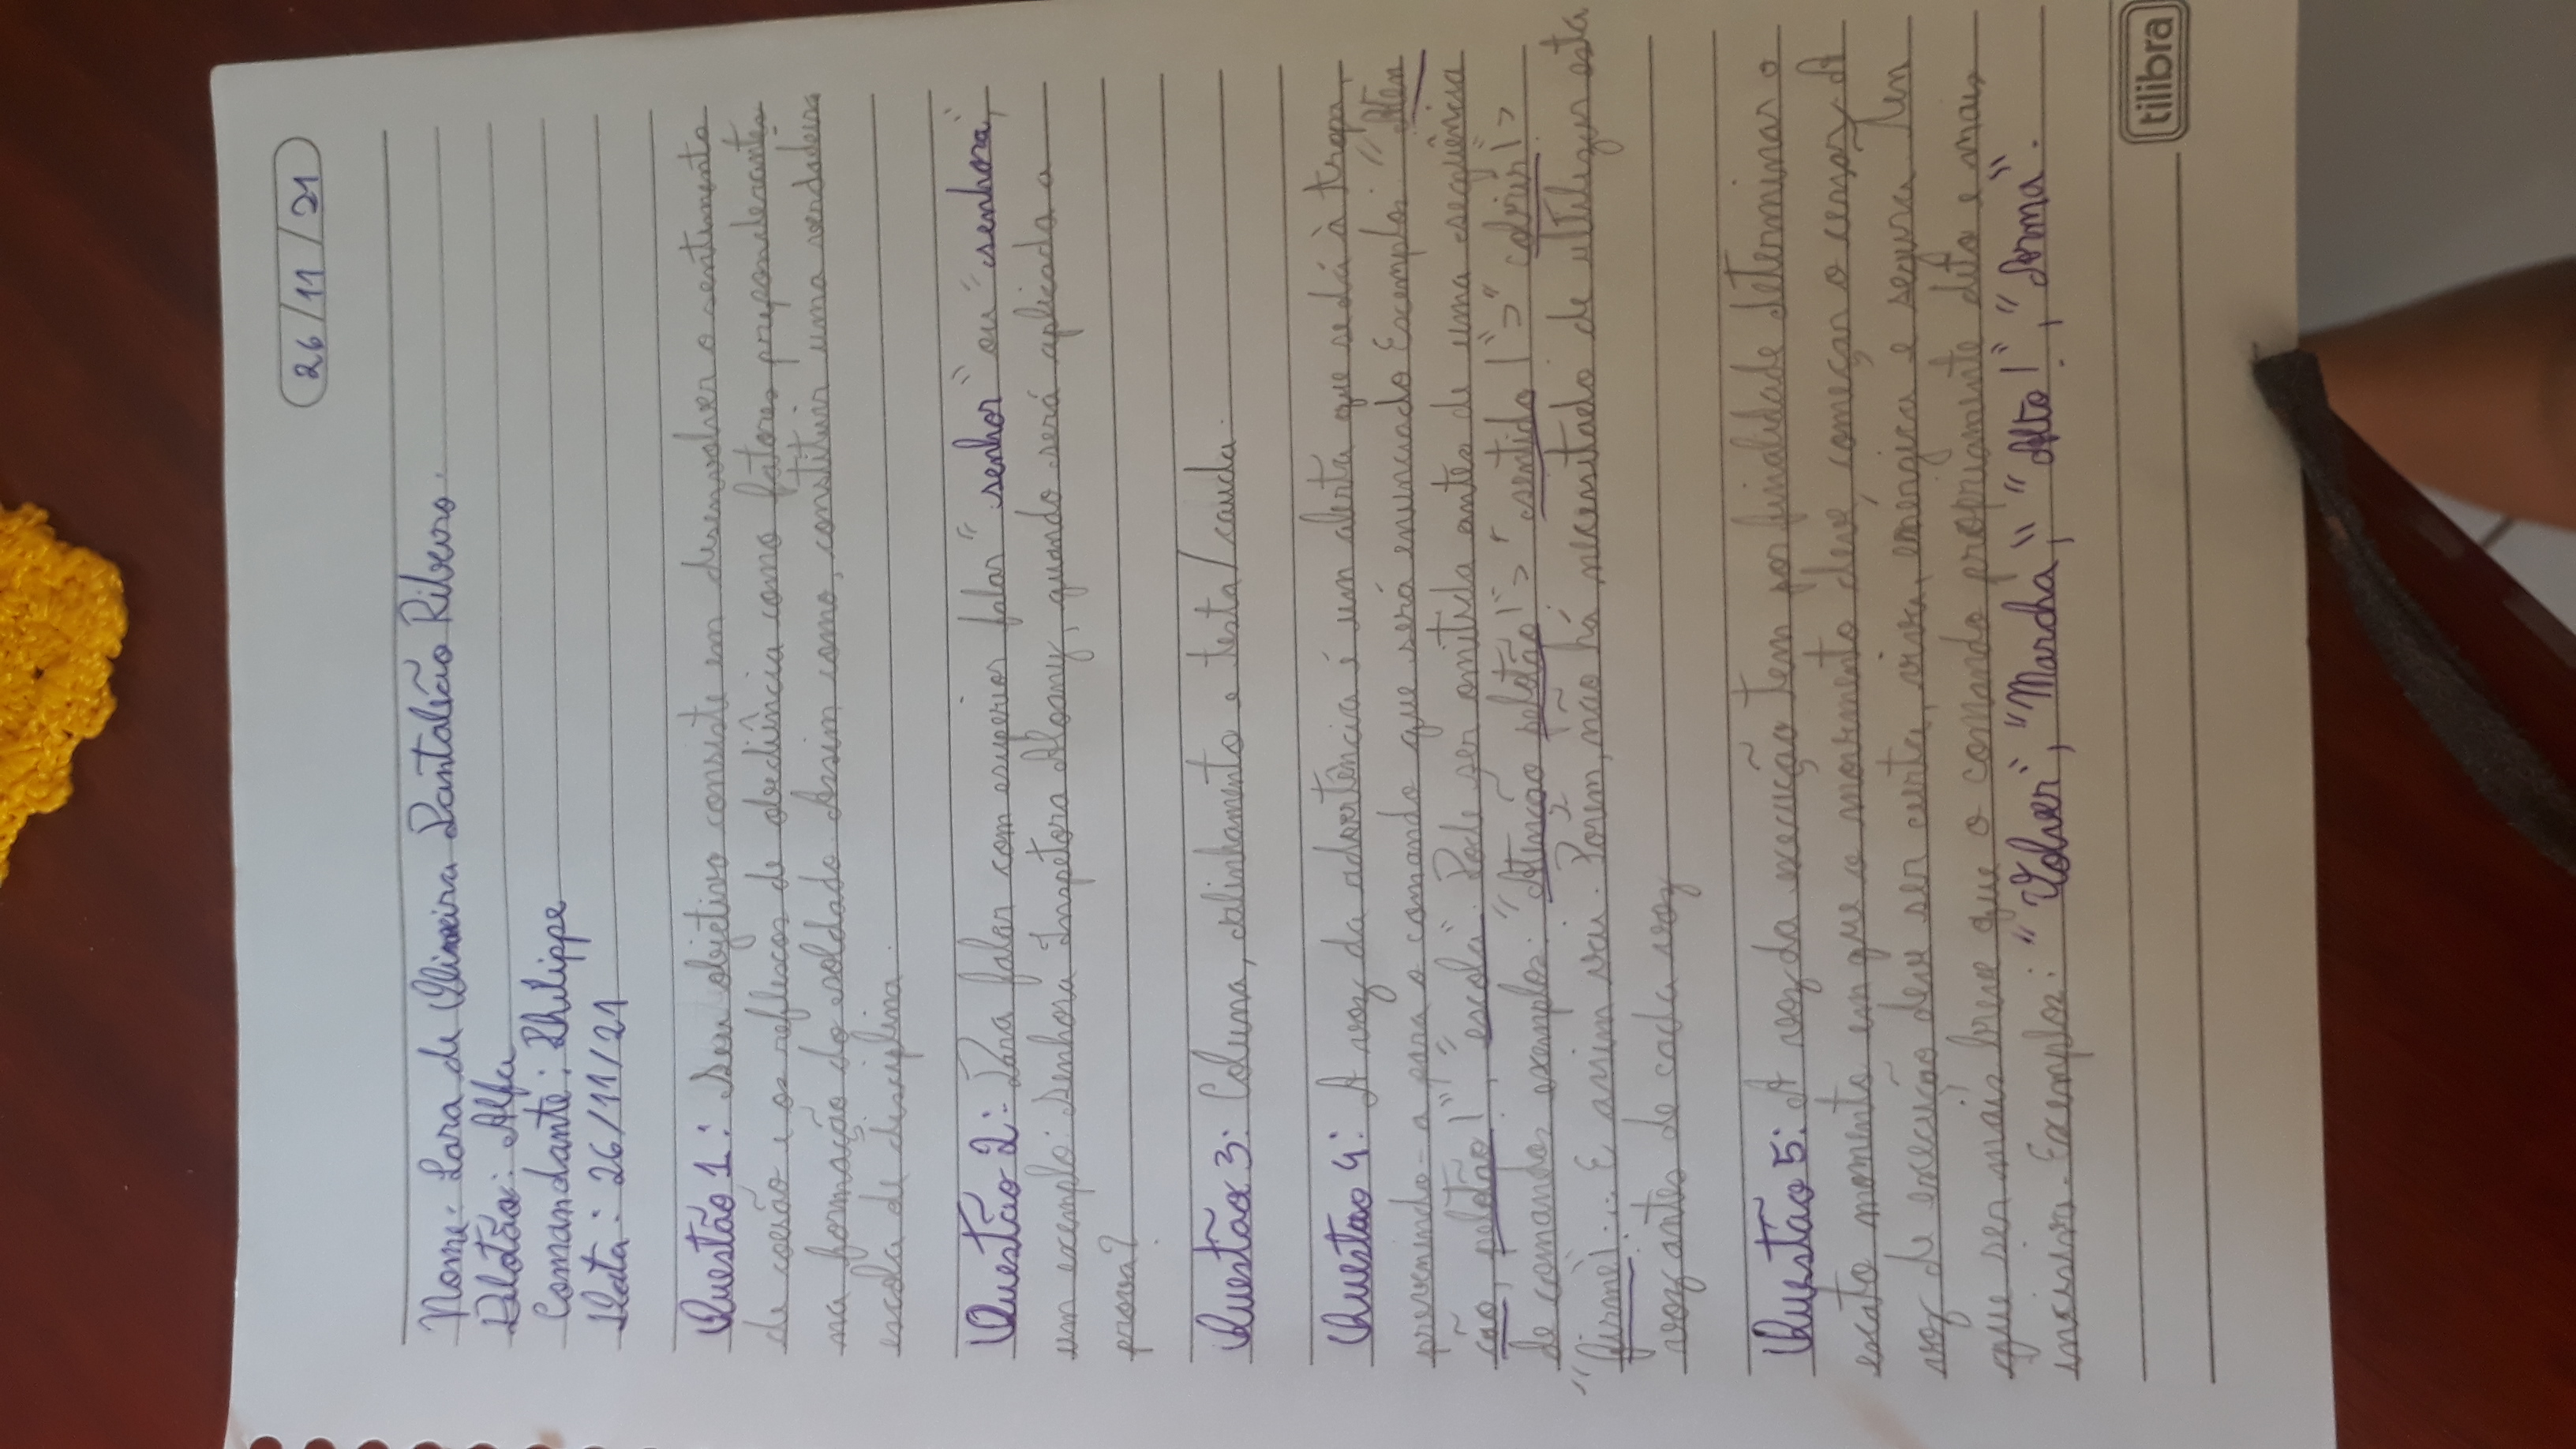 26/11/21
Nome: Lara de Oliveira Pantaleão Ribeiro.
Pelotão: Alfa
Comandante: Philippe
Data: 26/11/21
Questão 1: Seu objetivo consiste em desenvolver o sentimento
de coesão e os reflexos de obediência como fatores preponderantes
na formação do soldado. Assim como, constituir uma verdadeira
escola de disciplina.
Questão 2: Para falar com superior falar "senhor" ou "senhora",
um exemplo: Senhora Inspetora, quando será aplicada a
prova?
Questão 3: Coluna, alinhamento e testa/cauda.
Questao 4: A voz da advertência é um alerta que se dá à tropa,
prevenindo-a para o comando que será enunciado Exemplos: "Aten
ção, pelotão!", "escola". Pode ser omitida antes de uma sequência
de comandos exemplos: "Atenção pelotão!" > "sentido!" > "cobrir! >
"firme! ... E assim vai. Porém, não há necessitado de utilizar esta
voz antes de cada voz
Questão 5: A voz da execução tem por finalidade determinar o
exato momento em que o movimento deve começar o cessar. A
voz de execução deve ser curta, viva, enérgica e segura. Tem
que ser mais breve que o comando propriamente dito e mais
incisiva. Exemplos: "Volver", "Marcha", "Alto!", "Arma".
tilibra